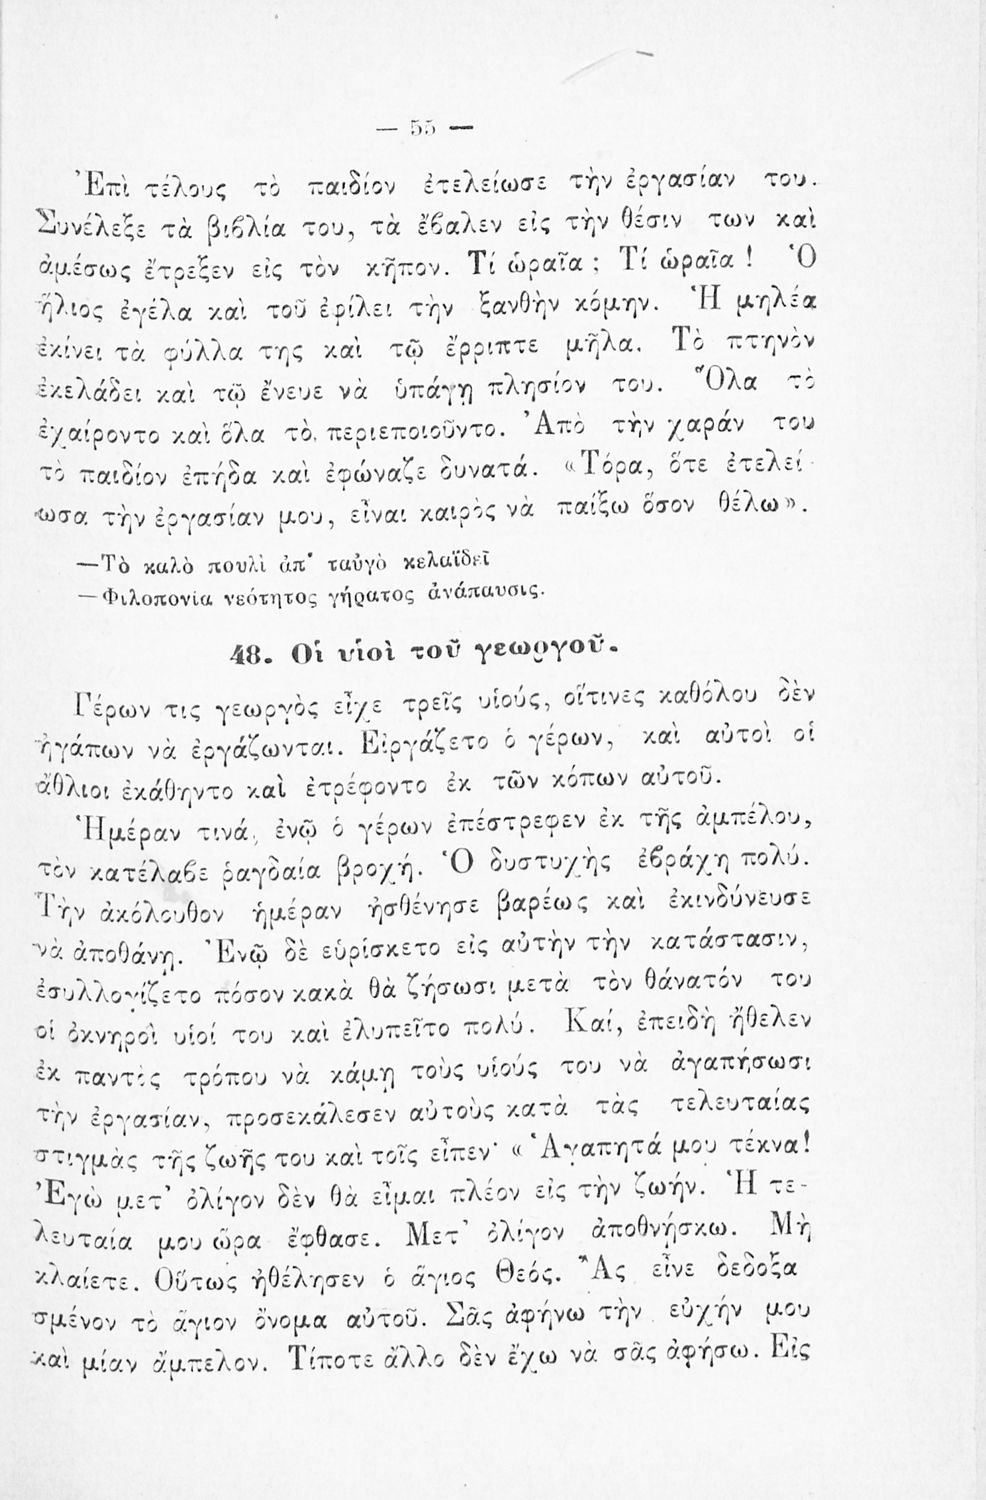 — 55 —
Ἐπὶ τέλους τὸ παιδίον ἐτελείωσε τὴν ἐργασίαν του.
Συνέλεξε τὰ βιβλία του, τὰ ἔβαλεν εἰς τὴν θέσιν των καὶ
ἀμέσως ἔτρεξεν εἰς τὸν κῆπον. Τί ὡραῖα ; Τί ὡραῖα ! Ὁ
ἥλιος ἐγέλα καὶ τοῦ ἐφίλει τὴν ξανθὴν κόμην. Ἡ μηλέα
ἐκίνει τὰ φύλλα της καὶ τῷ ἔρριπτε μῆλα. Τὸ πτηνὸν
ἐκελάδει καὶ τῷ ἔνευε νὰ ὑπάγῃ πλησίον του. Ὅλα τὸ
ἐχαίροντο καὶ ὅλα τὸ περιεποιοῦντο. Ἀπὸ τὴν χαράν του
τὸ παιδίον ἐπήδα καὶ ἐφώναζε δυνατά. «Τόρα, ὅτε ἐτελεί-
ωσα τὴν ἐργασίαν μου, εἶναι καιρὸς νὰ παίξω ὅσον θέλω».
—Τὸ καλὸ πουλὶ ἀπ' ταὐγὸ κελαϊδεῖ
—Φιλοπονία νεότητος γήρατος ἀνάπαυσις.
48. Οἱ υἱοὶ τοῦ γεωργοῦ.
Γέρων τις γεωργὸς εἶχε τρεῖς υἱούς, οἵτινες καθόλου δὲν
ἠγάπων νὰ ἐργάζωνται. Εἰργάζετο ὁ γέρων, καὶ αὐτοὶ οἱ
ἄθλιοι ἐκάθηντο καὶ ἐτρέφοντο ἐκ τῶν κόπων αὐτοῦ.
Ἡμέραν τινά, ἐνῷ ὁ γέρων ἐπέστρεφεν ἐκ τῆς ἀμπέλου,
τὸν κατέλαβε ῥαγδαία βροχή. Ὁ δυστυχὴς ἐβράχη πολύ.
Τὴν ἀκόλουθον ἡμέραν ἠσθένησε βαρέως καὶ ἐκινδύνευσε
νὰ ἀποθάνῃ. Ἐνῷ δὲ εὑρίσκετο εἰς αὐτὴν τὴν κατάστασιν,
ἐσυλλογίζετο πόσον κακὰ θὰ ζήσωσι μετὰ τὸν θάνατόν του
οἱ ὀκνηροὶ υἱοί του καὶ ἐλυπεῖτο πολύ. Καί, ἐπειδὴ ἤθελεν
ἐκ παντὸς τρόπου νὰ κάμῃ τοὺς υἱούς του νὰ ἀγαπήσωσι
τὴν ἐργασίαν, προσεκάλεσεν αὐτοὺς κατὰ τὰς τελευταίας
στιγμὰς τῆς ζωῆς του καὶ τοῖς εἶπεν· «Ἀγαπητά μου τέκνα!
Ἐγὼ μετ' ὀλίγον δὲν θὰ εἶμαι πλέον εἰς τὴν ζωήν. Ἡ τε-
λευταία μου ὥρα ἔφθασε. Μετ' ὀλίγον ἀποθνήσκω. Μὴ
κλαίετε. Οὕτως ἠθέλησεν ὁ ἅγιος Θεός. Ἂς εἶνε δεδοξα
σμένον τὸ ἅγιον ὄνομα αὐτοῦ. Σᾶς ἀφήνω τὴν εὐχήν μου
καὶ μίαν ἄμπελον. Τίποτε ἄλλο δὲν ἔχω νὰ σᾶς ἀφήσω. Εἰς